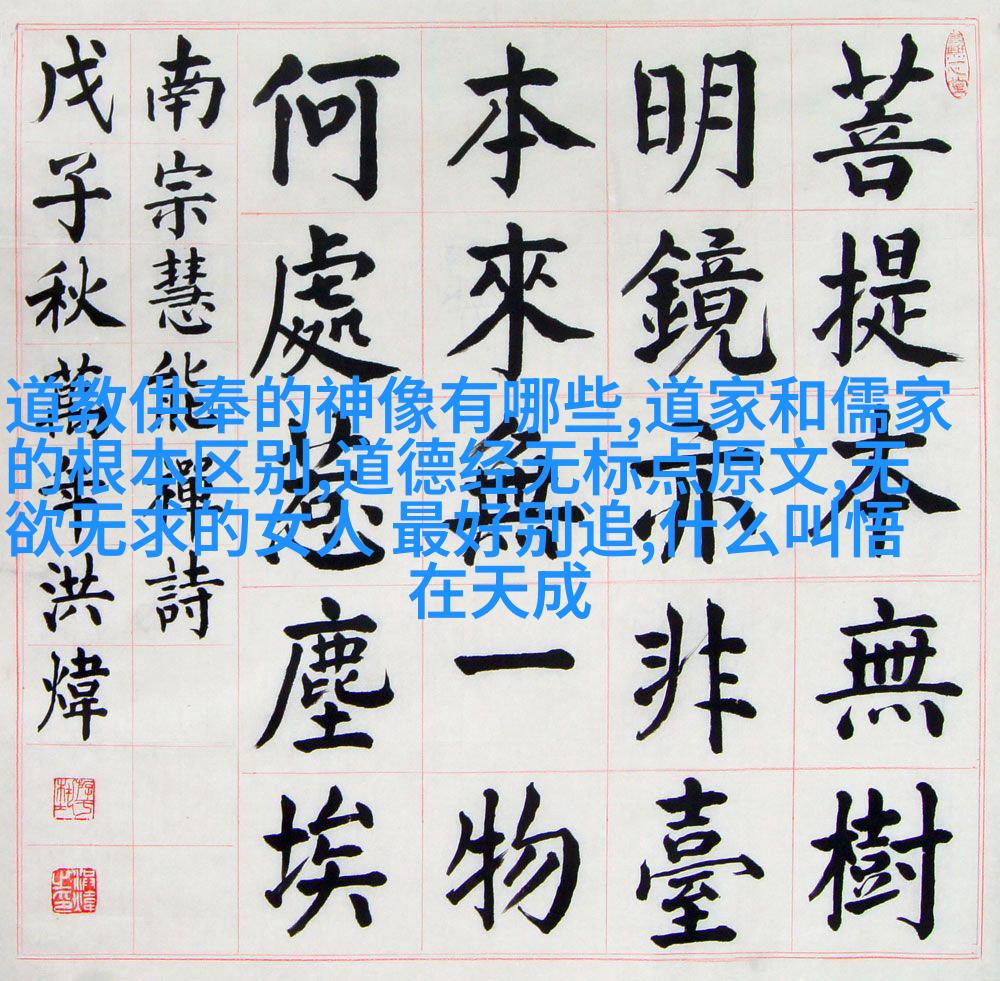 菩提本無樹
明鏡亦非臺
本來無一物
何處惹塵埃
南宗慧能禪詩
戊子秋萬洪煒
道教供奉的神像有哪些,道家和儒家
的根本区别,道德经无标点原文,无
欲无求的女人 最好别追,什么叫悟
在天成